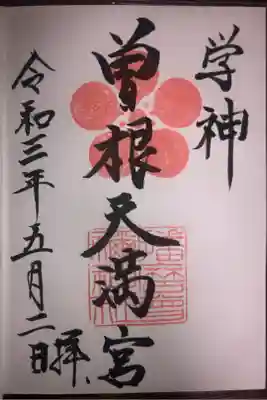 学神
曽根天満宮
令和三年五月二日拝